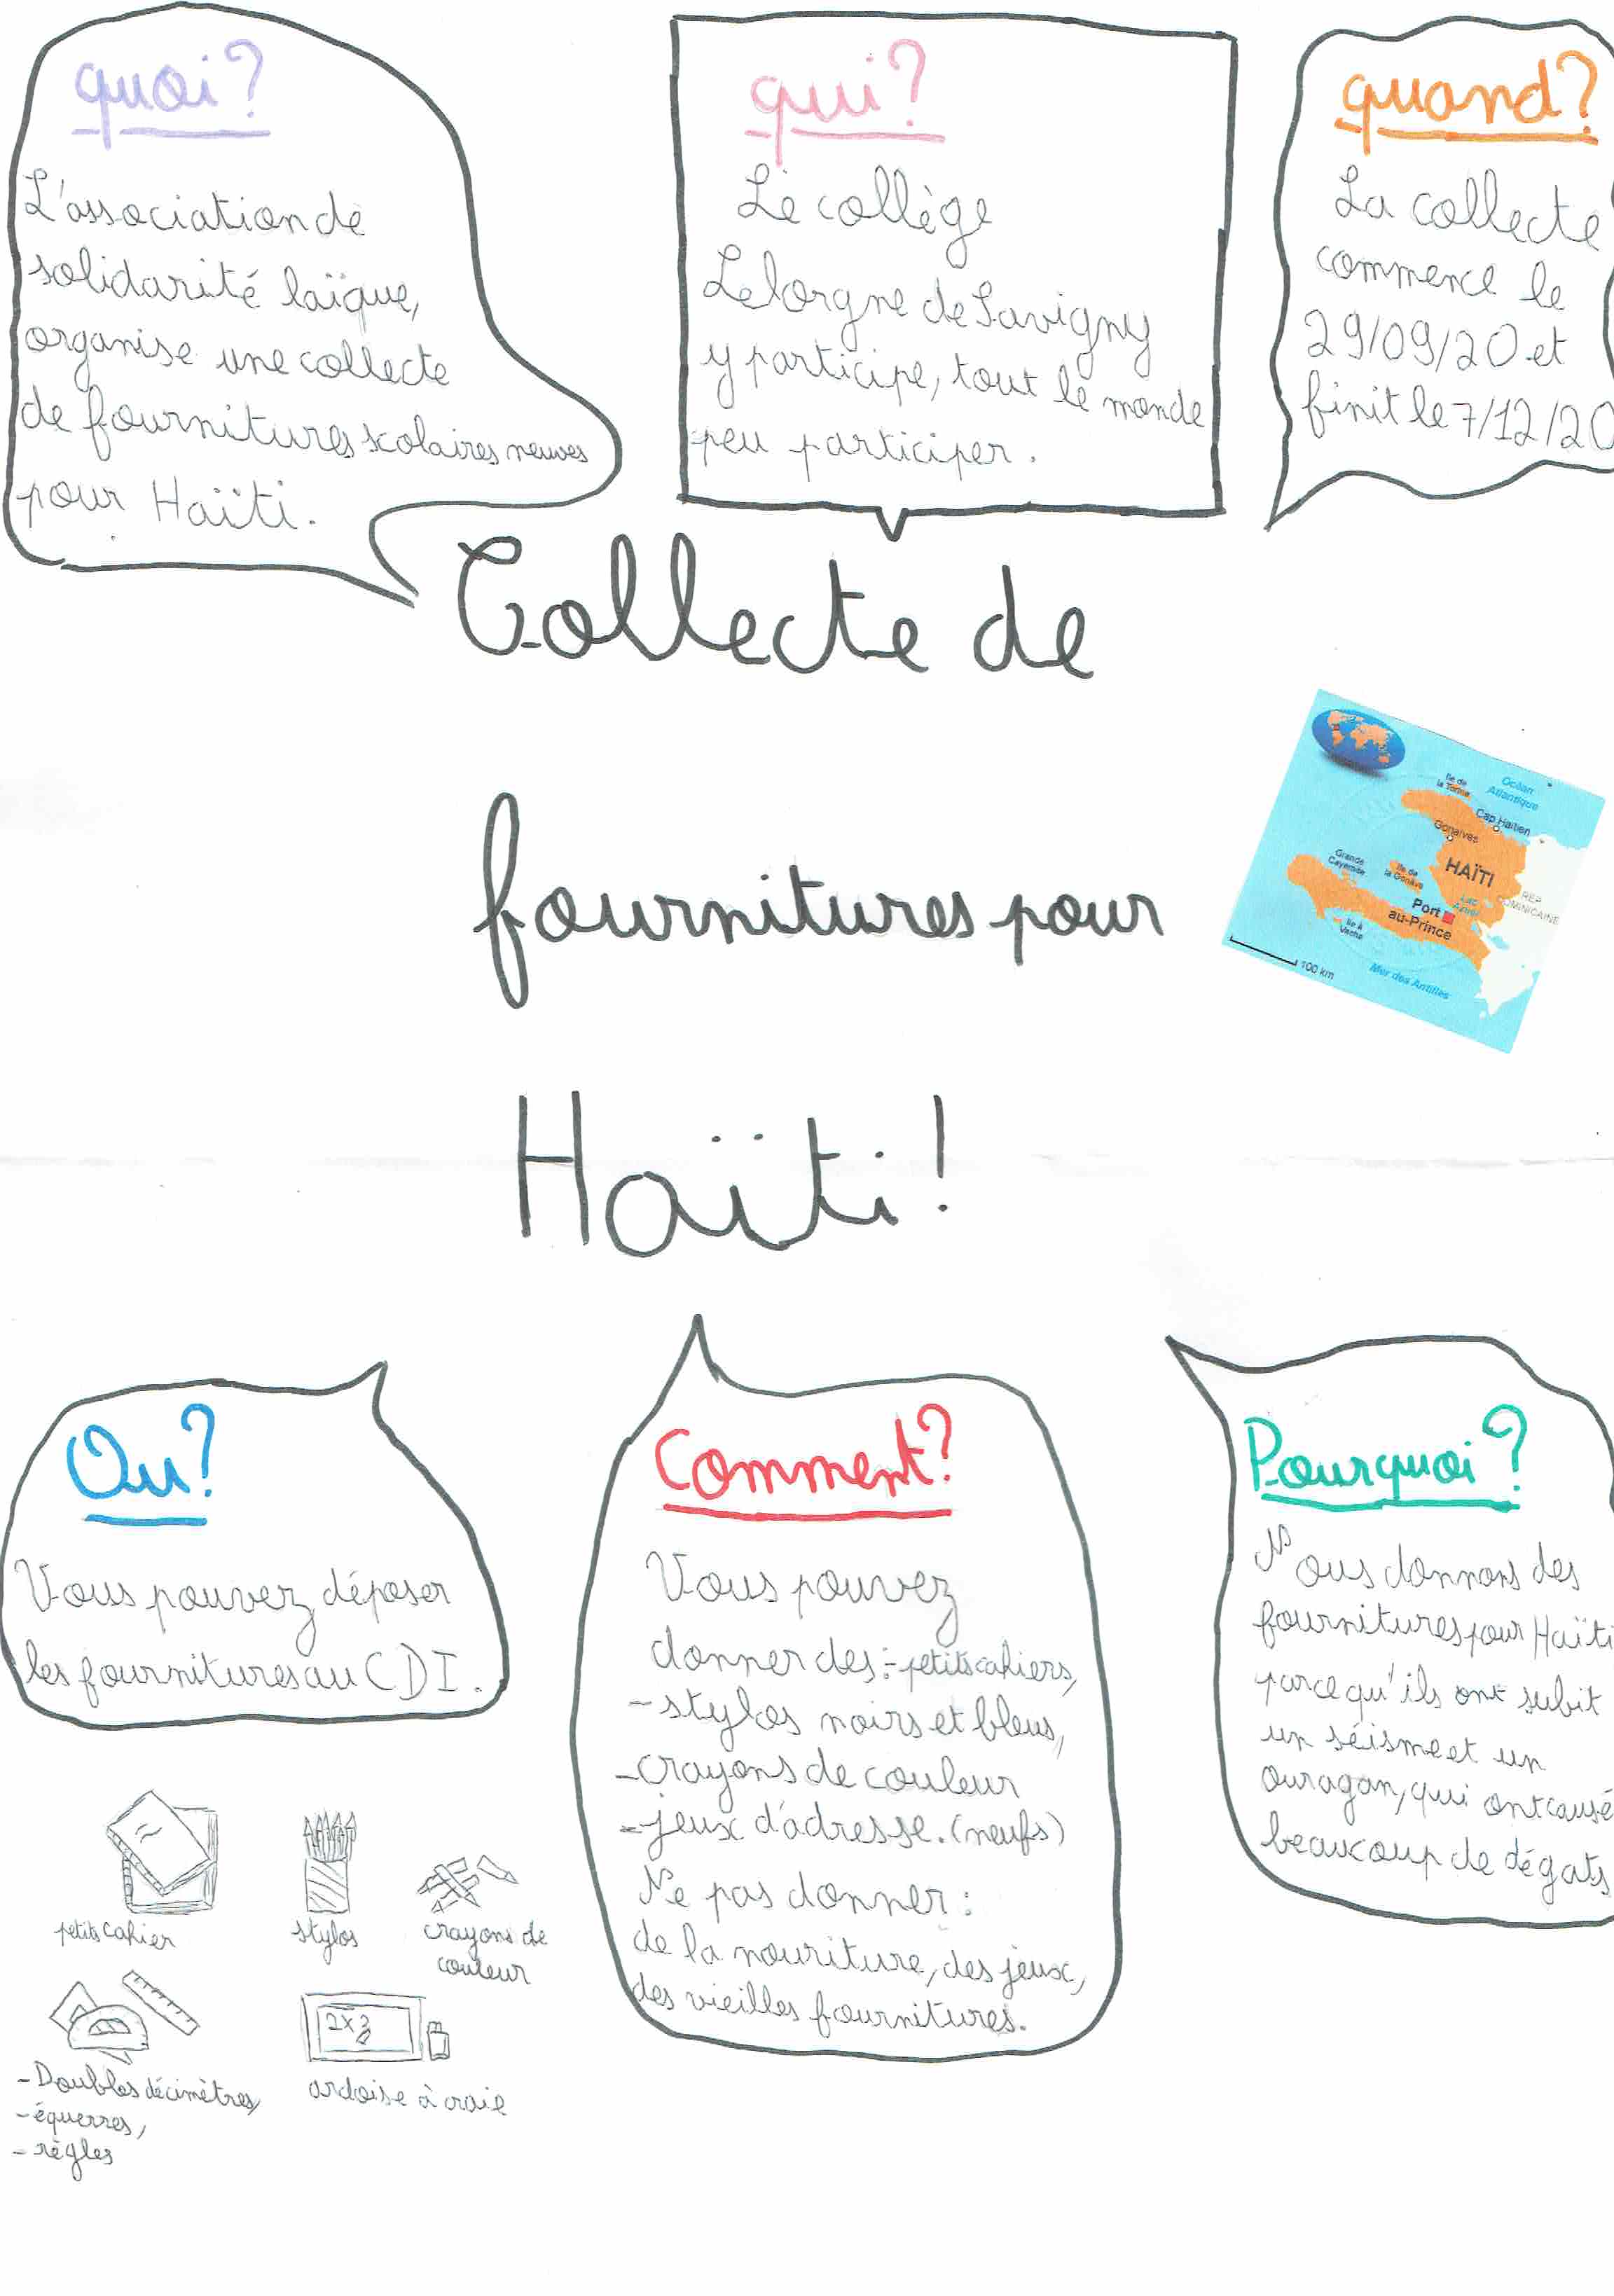 quoi?
L'association de
solidarité laïque,
organise une collecte
de fournitures scolaires neuves
pour Haïti.
qui?
Le collège
Lelorgne de Savigny
y participe, tout le monde
peu participer.
quand?
La collecte
commence le
29/09/20 et
finit le 7/12/20
Collecte de
fournitures pour
Haïti!
Océan
Atlantique
Ile de
la Tortue
Cap Haïtien
Gonaïves
HAÏTI
Grande
Cayemite
Ile de
la Gonâve
Lac
Azuei
RÉP
DOMINICAINE
Port
au-Prince
Ile à
Vache
100 km
Mer des Antilles
Ou?
Vous pouvez déposer
les fournitures au CDI.
Comment?
Vous pouvez
donner des:- petits cahiers,
- stylos noirs et bleus,
- crayons de couleur
- jeux d'adresse. (neufs)
Ne pas donner:
de la nouriture, des jeux,
des vieilles fournitures.
Pourquoi?
Nous donnons des
fournitures pour Haïti
parce qu'ils ont subit
un séisme et un
ouragan, qui ont causé
beaucoup de dégats
petits cahier
stylos
crayons de
couleur
2x3
- Doubles décimètres,
- équerres,
- règles
ardoise à craie